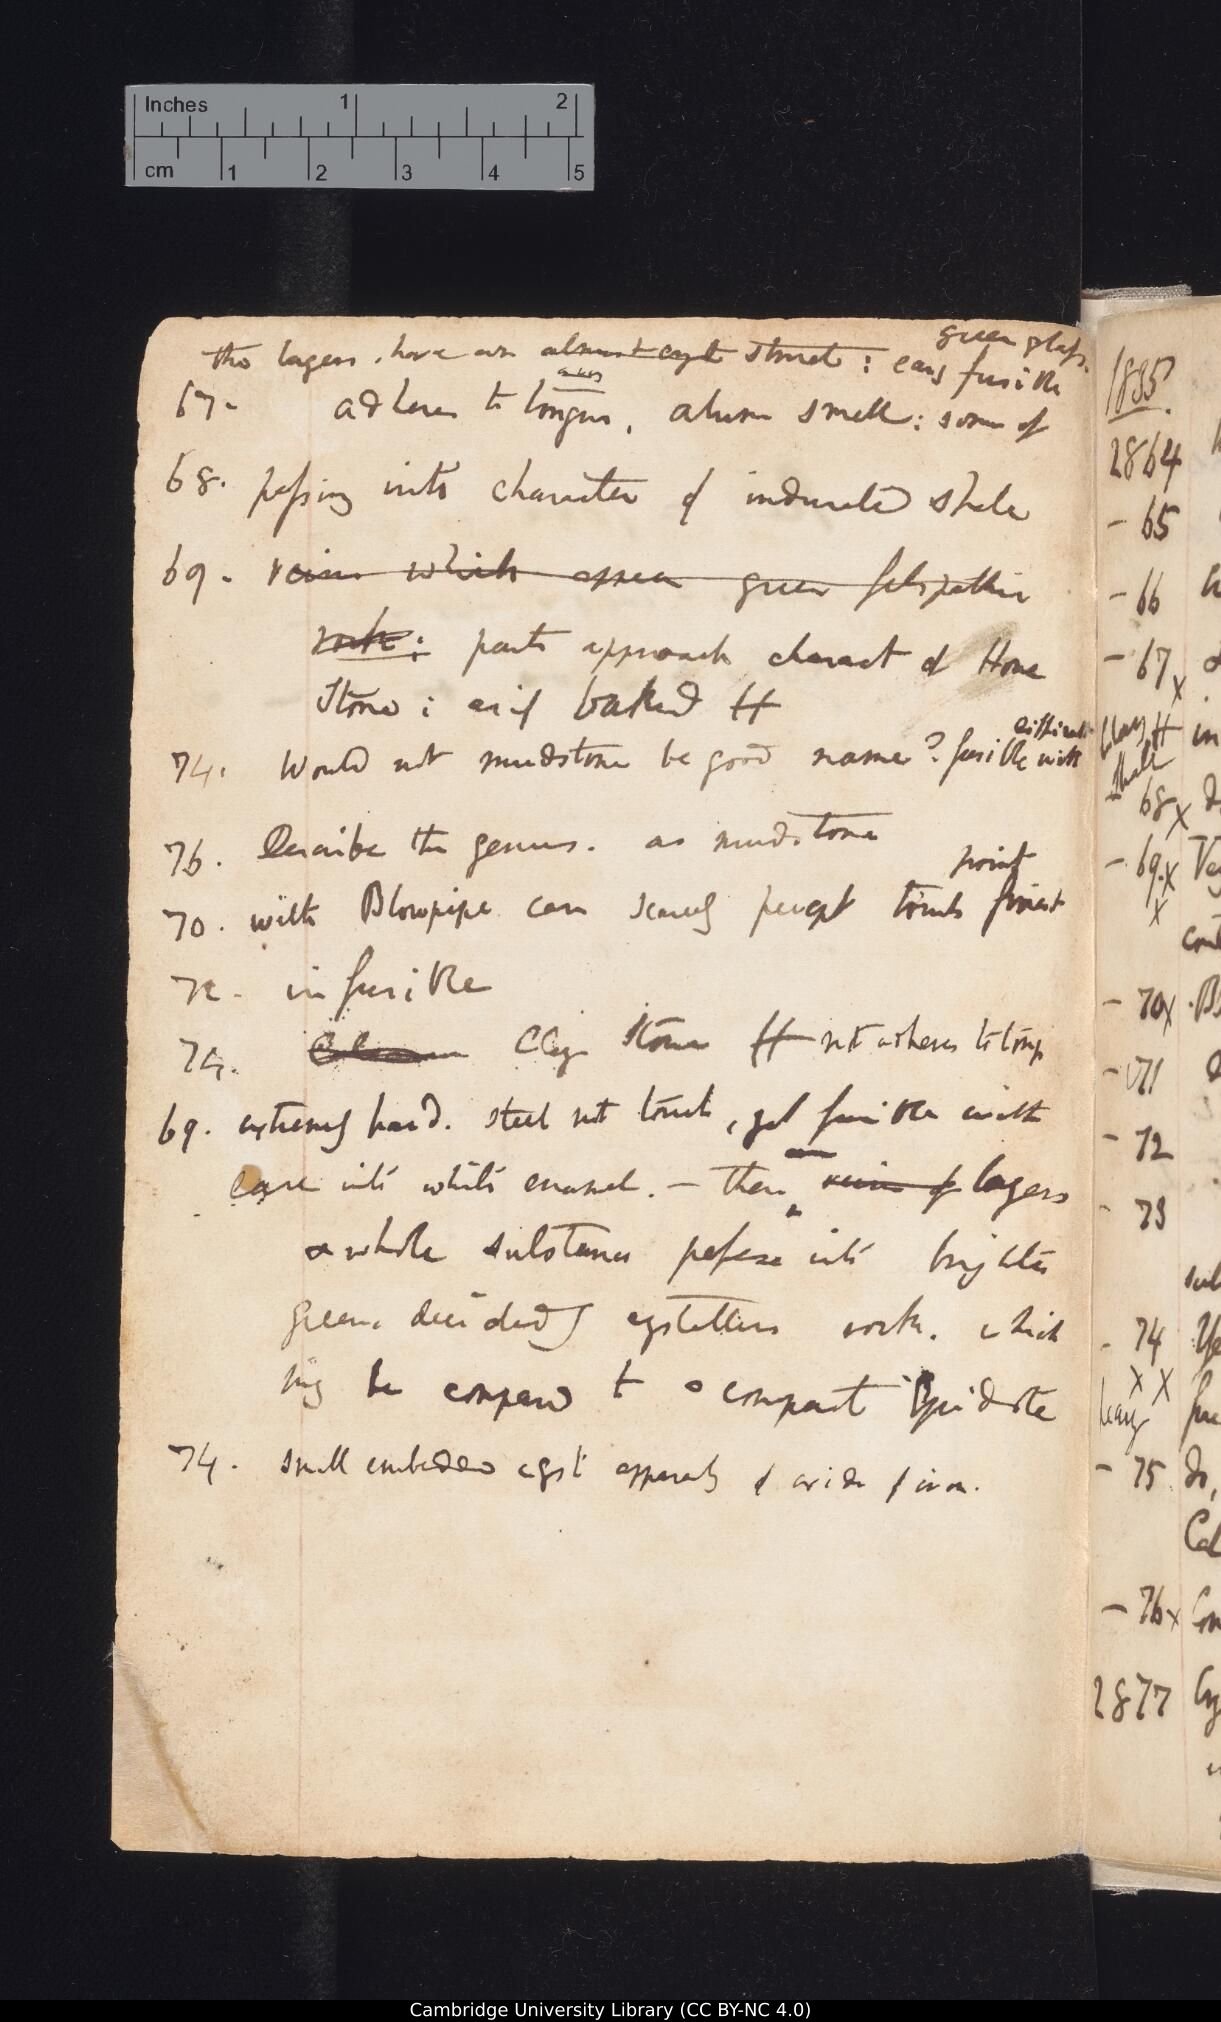 Inches 1 2
cm 1 2 3 4 5
green glass
the layers have an almost cryst struct: easy fusible
67. adheres to tongue, alum smell: some of
68. passing into character of indurated shale
69. veins which appear green felspathic
rock: parts approach charact of Hone
Stone: as if baked H
difficult
74. Would not mudstone be good name? fusible with
76. Describe the genus. as mudstone
point
70. with Blowpipe can scarcely percept touch finest
72. infusible
74. Clay Stone H not adheres to tong
69. extremely hard. steel not touch, yet fusible with
ease into white enamel. — then veins of layers
& whole substance passes into brighter
green decidedly crystalline rock. which
may be compared to a compact Epidote
74. small embedded cryst apparently of oxide of iron.
1835
2864
- 65
- 66
- 67 x
H in
shale
68 x
- 69. x
x
- 70 x
- 71
- 72
- 73
- 74
x x
- 75 do,
- 76 x
2877
Cambridge University Library (CC BY-NC 4.0)